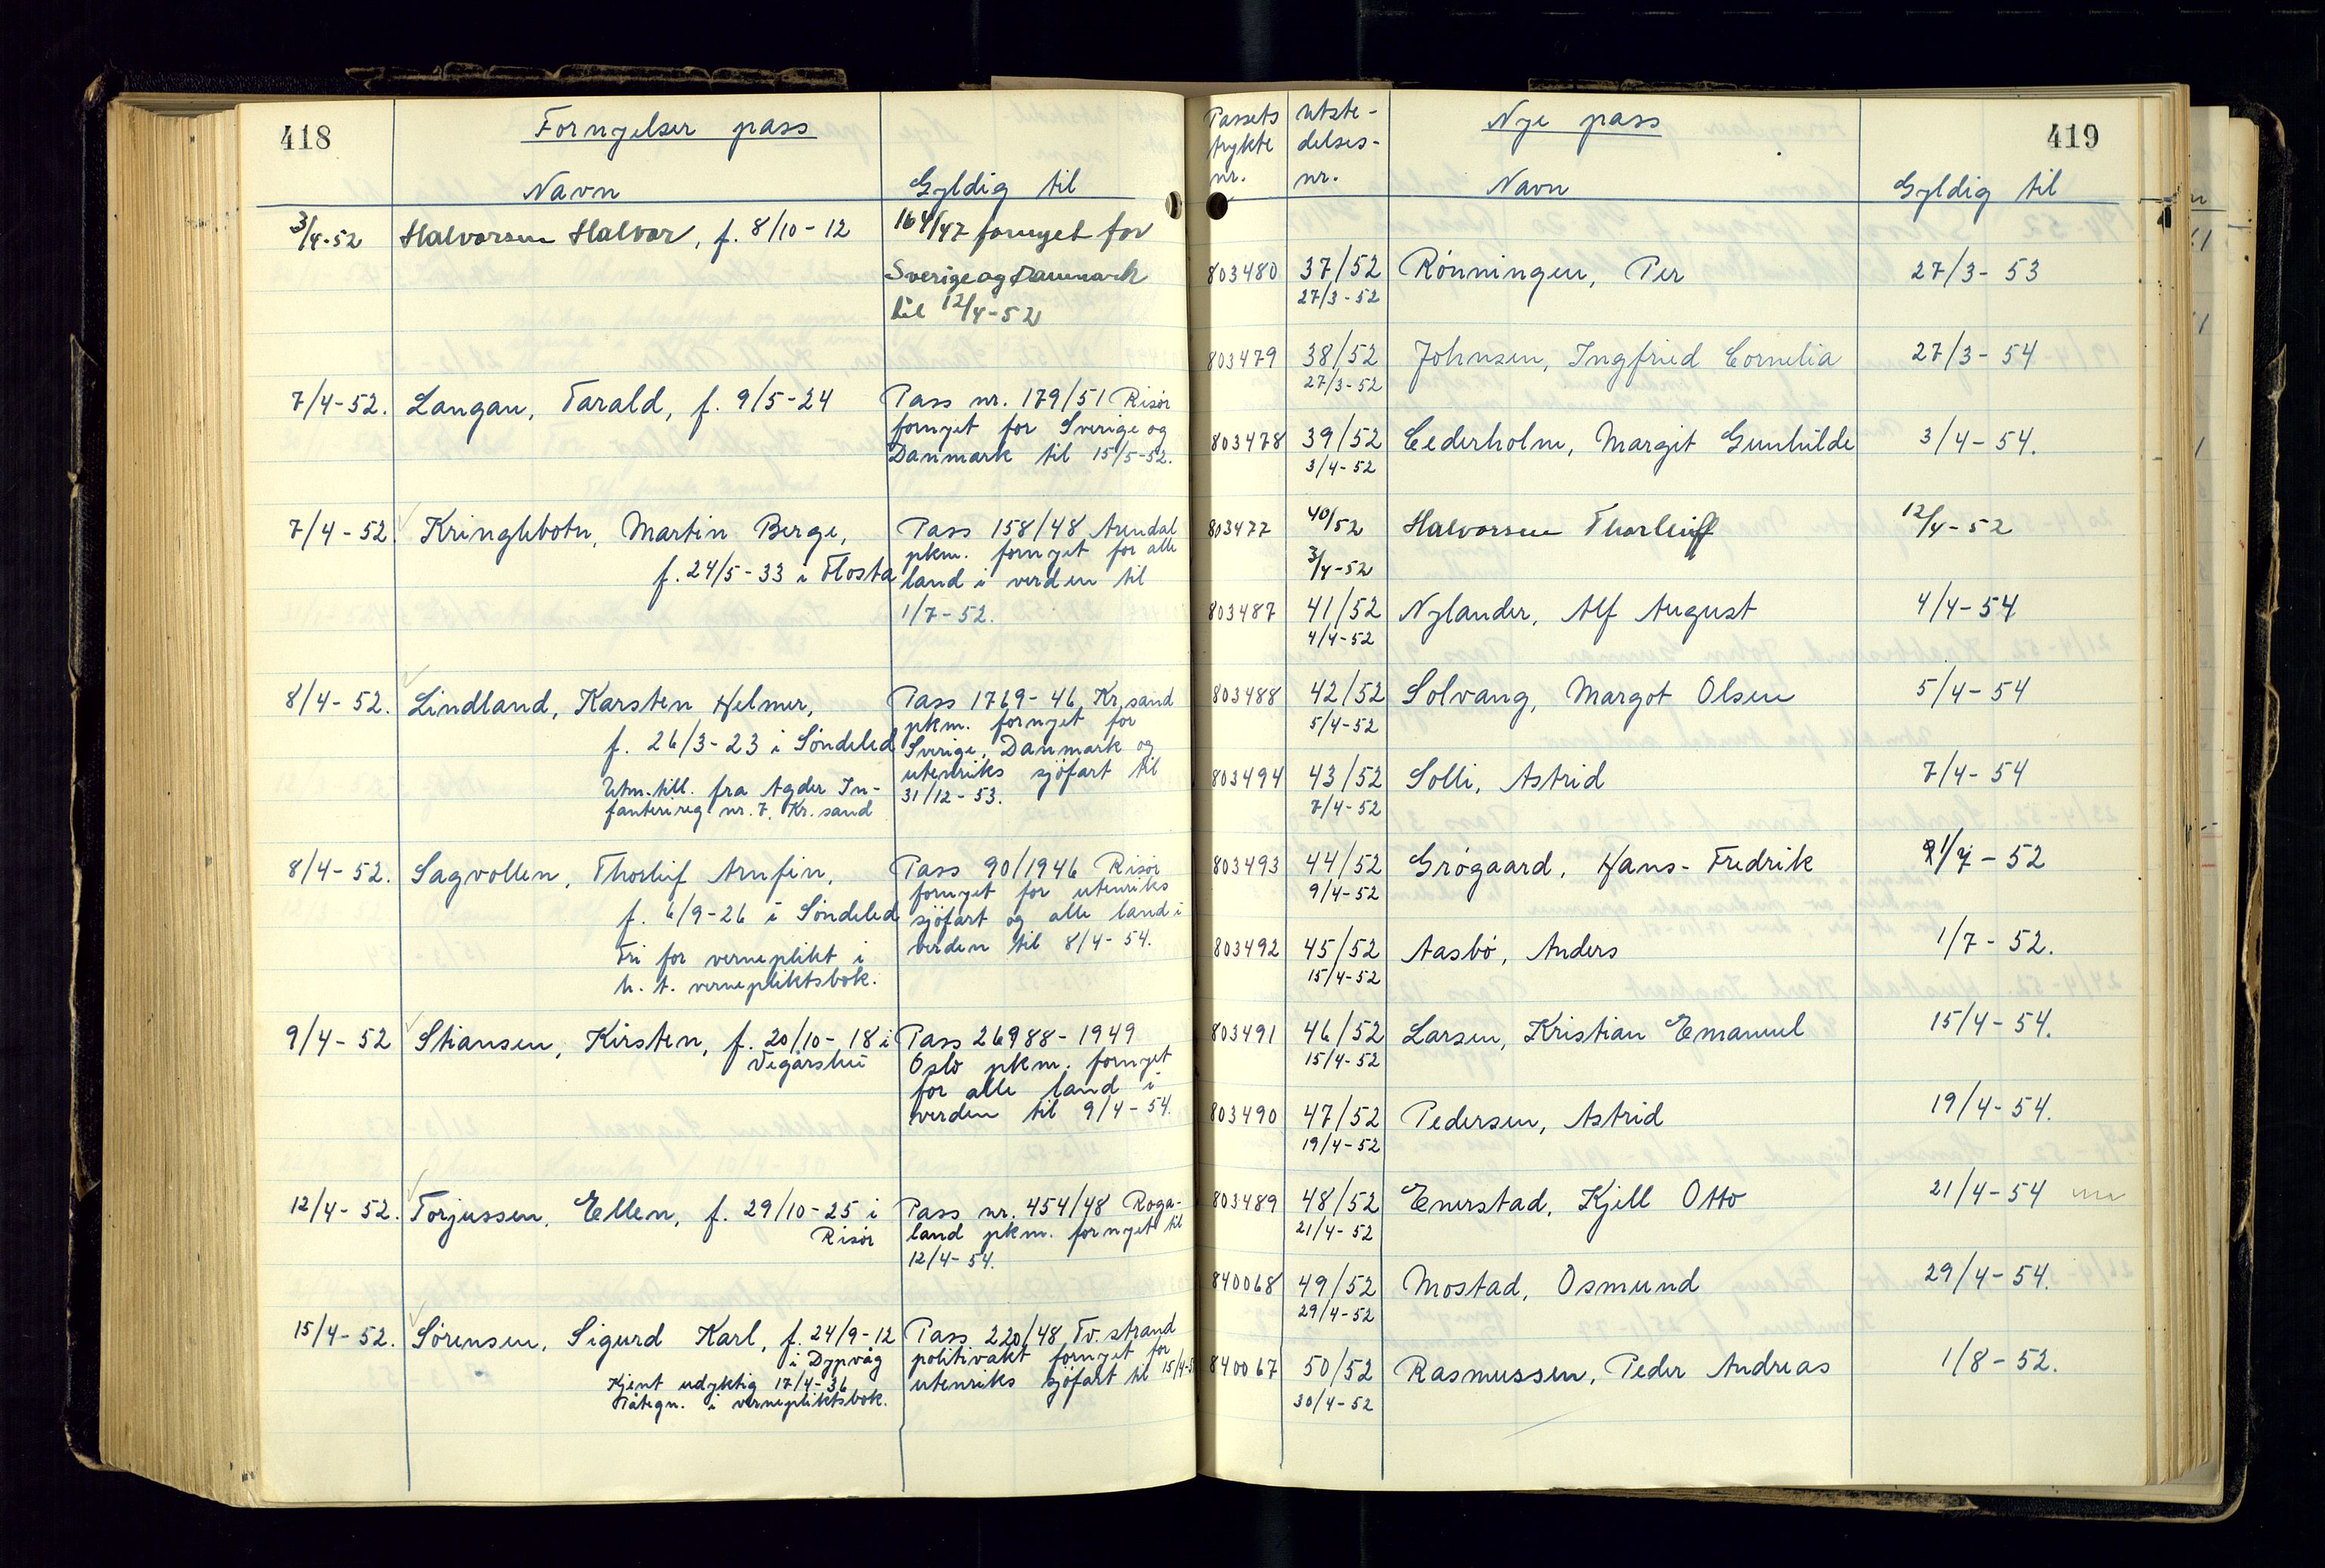 418
Fornyelser pass
Navn
Gyldig til
3/4-52 Halvorsen Halvor, f. 8/10-12
164/47 fornyet for
Sverige og Danmark
til 12/4-52
7/4-52. Langan, Tarald, f. 9/5-24
Pass nr. 179/51 Risör
fornyet for Sverige og
Danmark til 15/5-52.
7/4-52 Kringlebotn, Martin Berge,
f. 24/5-33 i Flosta
Pass 158/48 Arendal
pkm. fornyet for alle
land i verden til
1/7-52.
8/4-52. Lindland, Karsten Helmer,
f. 26/3-23 i Söndeled
Utm.till. fra Agder In-
fanterireg nr. 7. Kr.sand
Pass 1769-46 Kr.sand
pkm. fornyet for
Sverige, Danmark og
utenriks sjöfart til
31/12-53.
8/4-52. Sagvollen, Thorleif Arnfin,
f. 6/9-26 i Söndeled
Fri for verneplikt i
h. t. vernepliktsbok.
Pass 90/1946 Risör
fornyet for utenriks
sjöfart og alle land i
verden til 8/4-54.
9/4-52 Stiansen, Kirsten, f. 20/10-18 i
Vegårshei
Pass 26988-1949
Oslo pkm. fornyet
for alle land i
verden til 9/4-54.
12/4-52. Torjussen, Ellen, f. 29/10-25 i
Risör
Pass nr. 454/48 Roga-
land pkm. fornyet til
12/4-54.
15/4-52. Sörensen, Sigurd Karl, f. 24/9-12
i Dypvåg
Kjent udyktig 17/4-36
Påtegn. i vernepliktsbok.
Pass 220/48 Tv.strand
politivakt fornyet for
utenriks sjöfart til 15/4-5
419
Passets
trykte
nr.
Utste-
delses-
nr.
Nye pass
Navn
Gyldig til
803480 37/52 Rönningen, Per 27/3-53
27/3-52
803479 38/52 Johnsen, Ingfried Cornelia 27/3-54
27/3-52
803478 39/52 Cederholm, Margit Gunhilde 3/4-54.
3/4-52
803477 40/52 Halvorsen Thorleiff 12/4-52
3/4-52
803487 41/52 Nylander, Alf August 4/4-54
4/4-52
803488 42/52 Solvang, Margot Olsen 5/4-54
5/4-52
803494 43/52 Solli, Astrid 7/4-54
7/4-52
803493 44/52 Grögaard, Hans-Fredrik 1/7-52
9/4-52
803492 45/52 Aasbö, Anders 1/7-52.
15/4-52
803491 46/52 Larsen, Kristian Emanuel 15/4-54.
15/4-52
803490 47/52 Pedersen, Astrid 19/4-54.
19/4-52
803489 48/52 Enerstad, Kjell Otto 21/4-54
21/4-52
840068 49/52 Mostad, Osmund 29/4-54.
29/4-52
840067 50/52 Rasmussen, Peder Andreas 1/8-52.
30/4-52